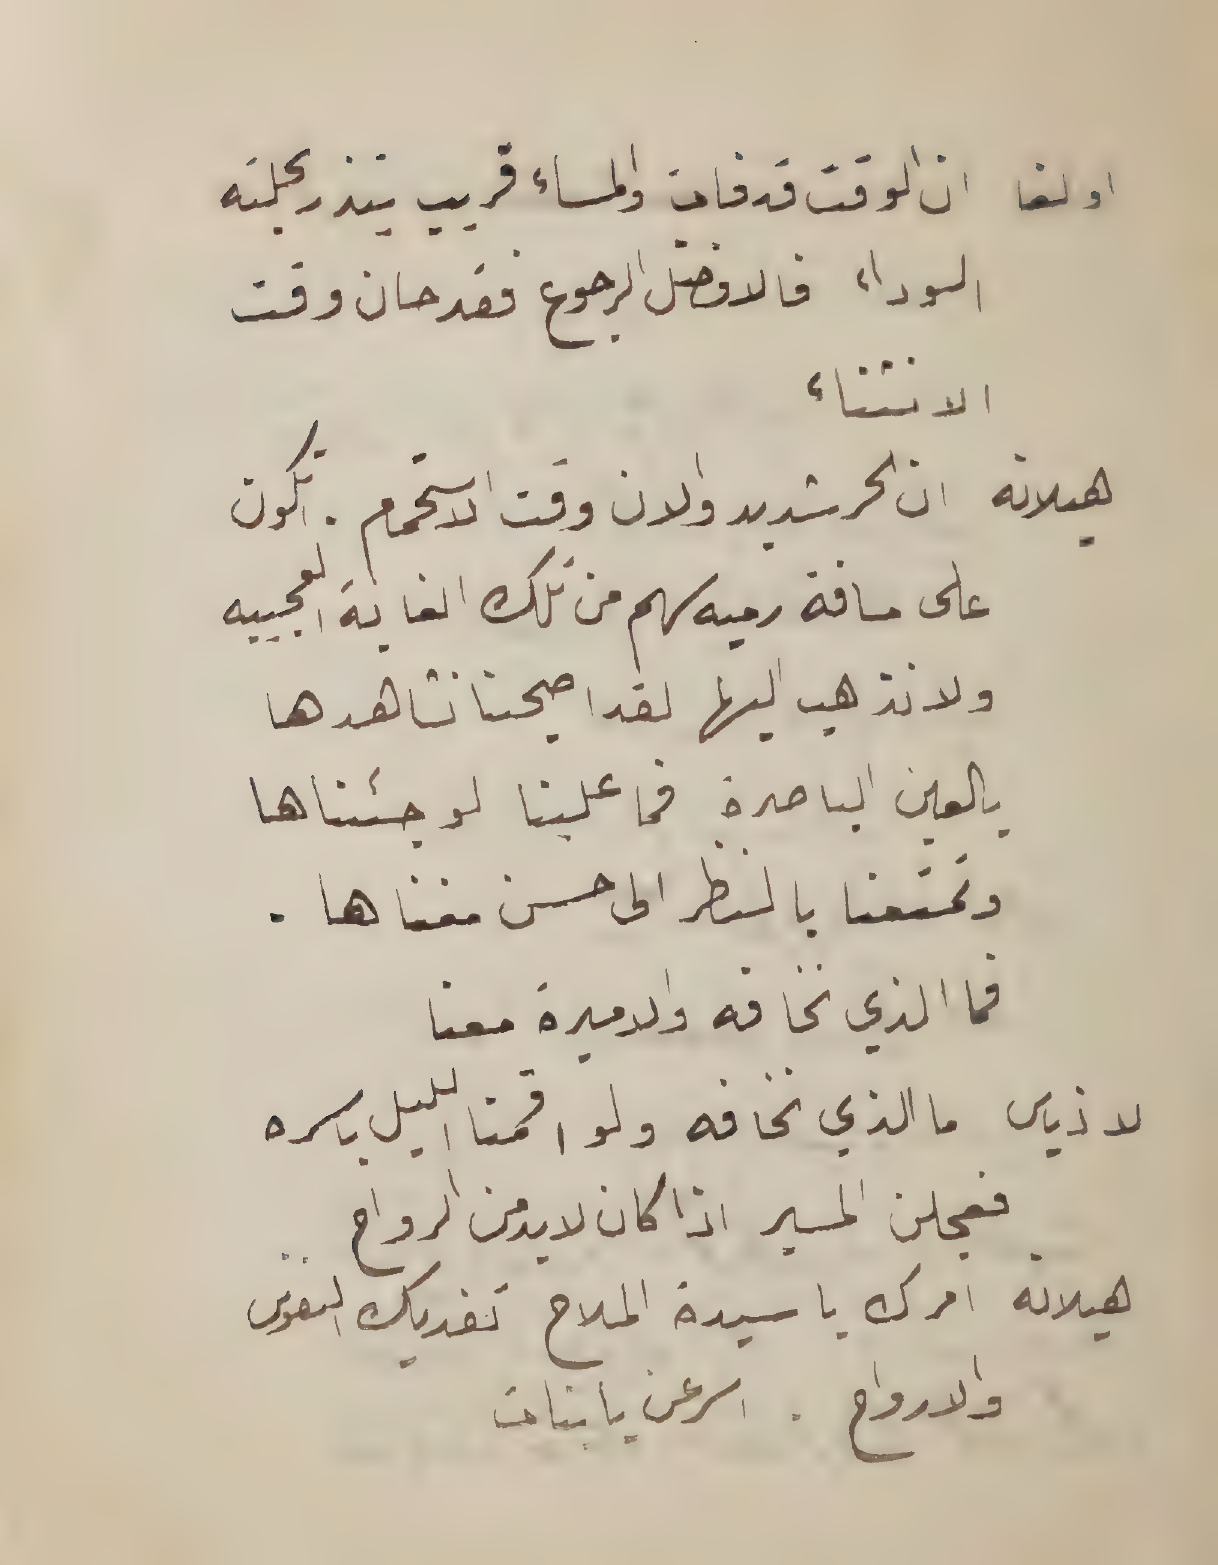 اولغا ان الوقت قد فات والمساء قريب ينذر بحلته
السوداء فالافضل الرجوع فقد حان وقت
الانثناء
هيلانه ان الحر شديد والان وقت الاستحمام . انكون
على مسافة رميه سهم من تلك الغابة العجيبه
ولا نذهب اليها لقد اصبحنا نشاهدها
بالعين الباصرة فما علينا لو جئناها
وتمتعنا بالنظر الى حسن مغناها .
فما الذي نخافه والاميرة معنا
لاذياس ما الذي نخافه ولو اقمنا الليل باسره
فعجلن المسير اذا كان لابد من الرواح
هيلانه امرك يا سيدة الملاح تفديك النفوس
والارواح . اسرعن يا بنات